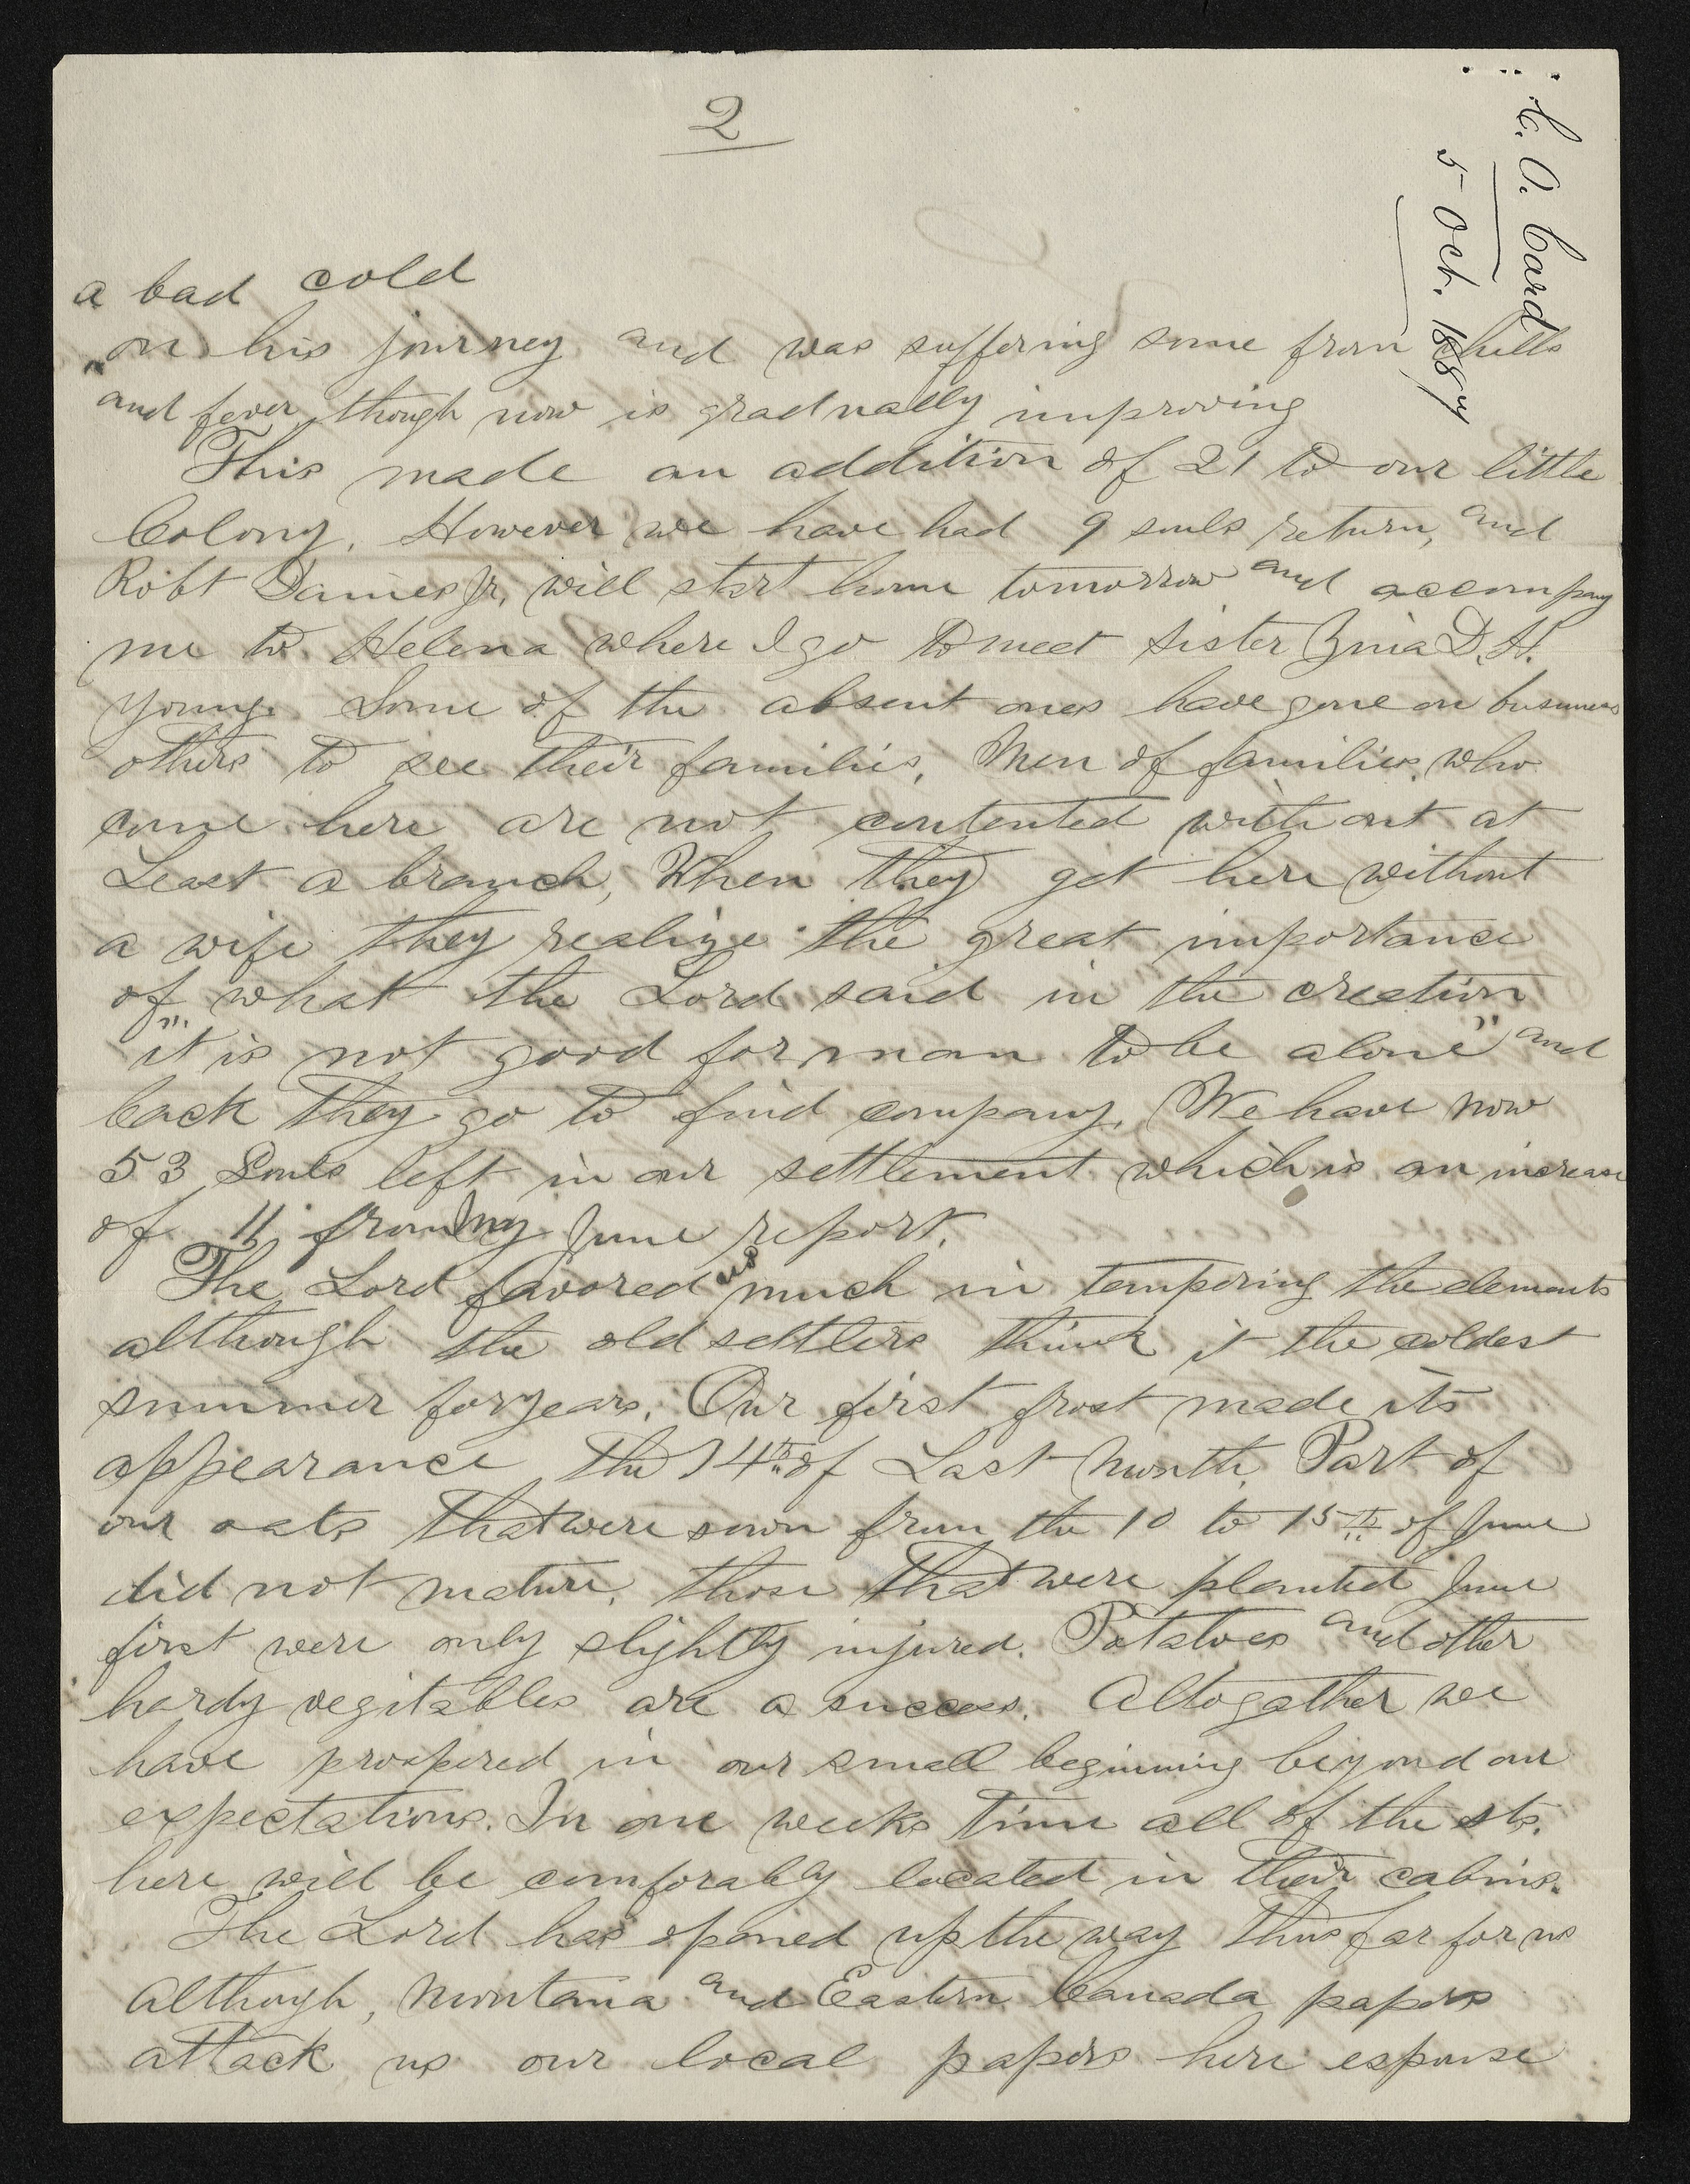 2
C. O. Card
5 Oct. 1887
a bad cold
on his journey and was suffering some from chills
and fever, though now is gradually improving
This made an addition of 21 to our little
Colony. However we have had 9 souls return, and
Robt Daines Jr, will start home tomorrow and accompany
me to Helena where I go to meet Sister Zina D. H.
Young. Some of the absent ones have gone on business
others to see their families. Men of families, who
come here are not contented without at
Least a branch, When they get here without
a wife they realize the great importance
of what the Lord said in the creation
"it is not good for man to be alone" and
back they go to find company. We have now
53 Souls left in our settlement which is an increase
of 11 from my June report.
The Lord favored us much in tempering the elements
although the old settlers think it the coldest
summer for years. Our first frost made its
appearance the 14th of Last Month. Part of
our oats that were sown from the 10 to 15th of June
did not mature, those that were planted June
first were only slightly injured. Potatoes and other
hardy vegitables are a success. Altogather we
have prospered in our small beginning beyond our
expectations. In one weeks time all of the sts.
here will be comforably located in their cabins.
The Lord has opened up the way thus far for us
Although, Montana and Eastern Canada papers
attack us our local papers here espouse